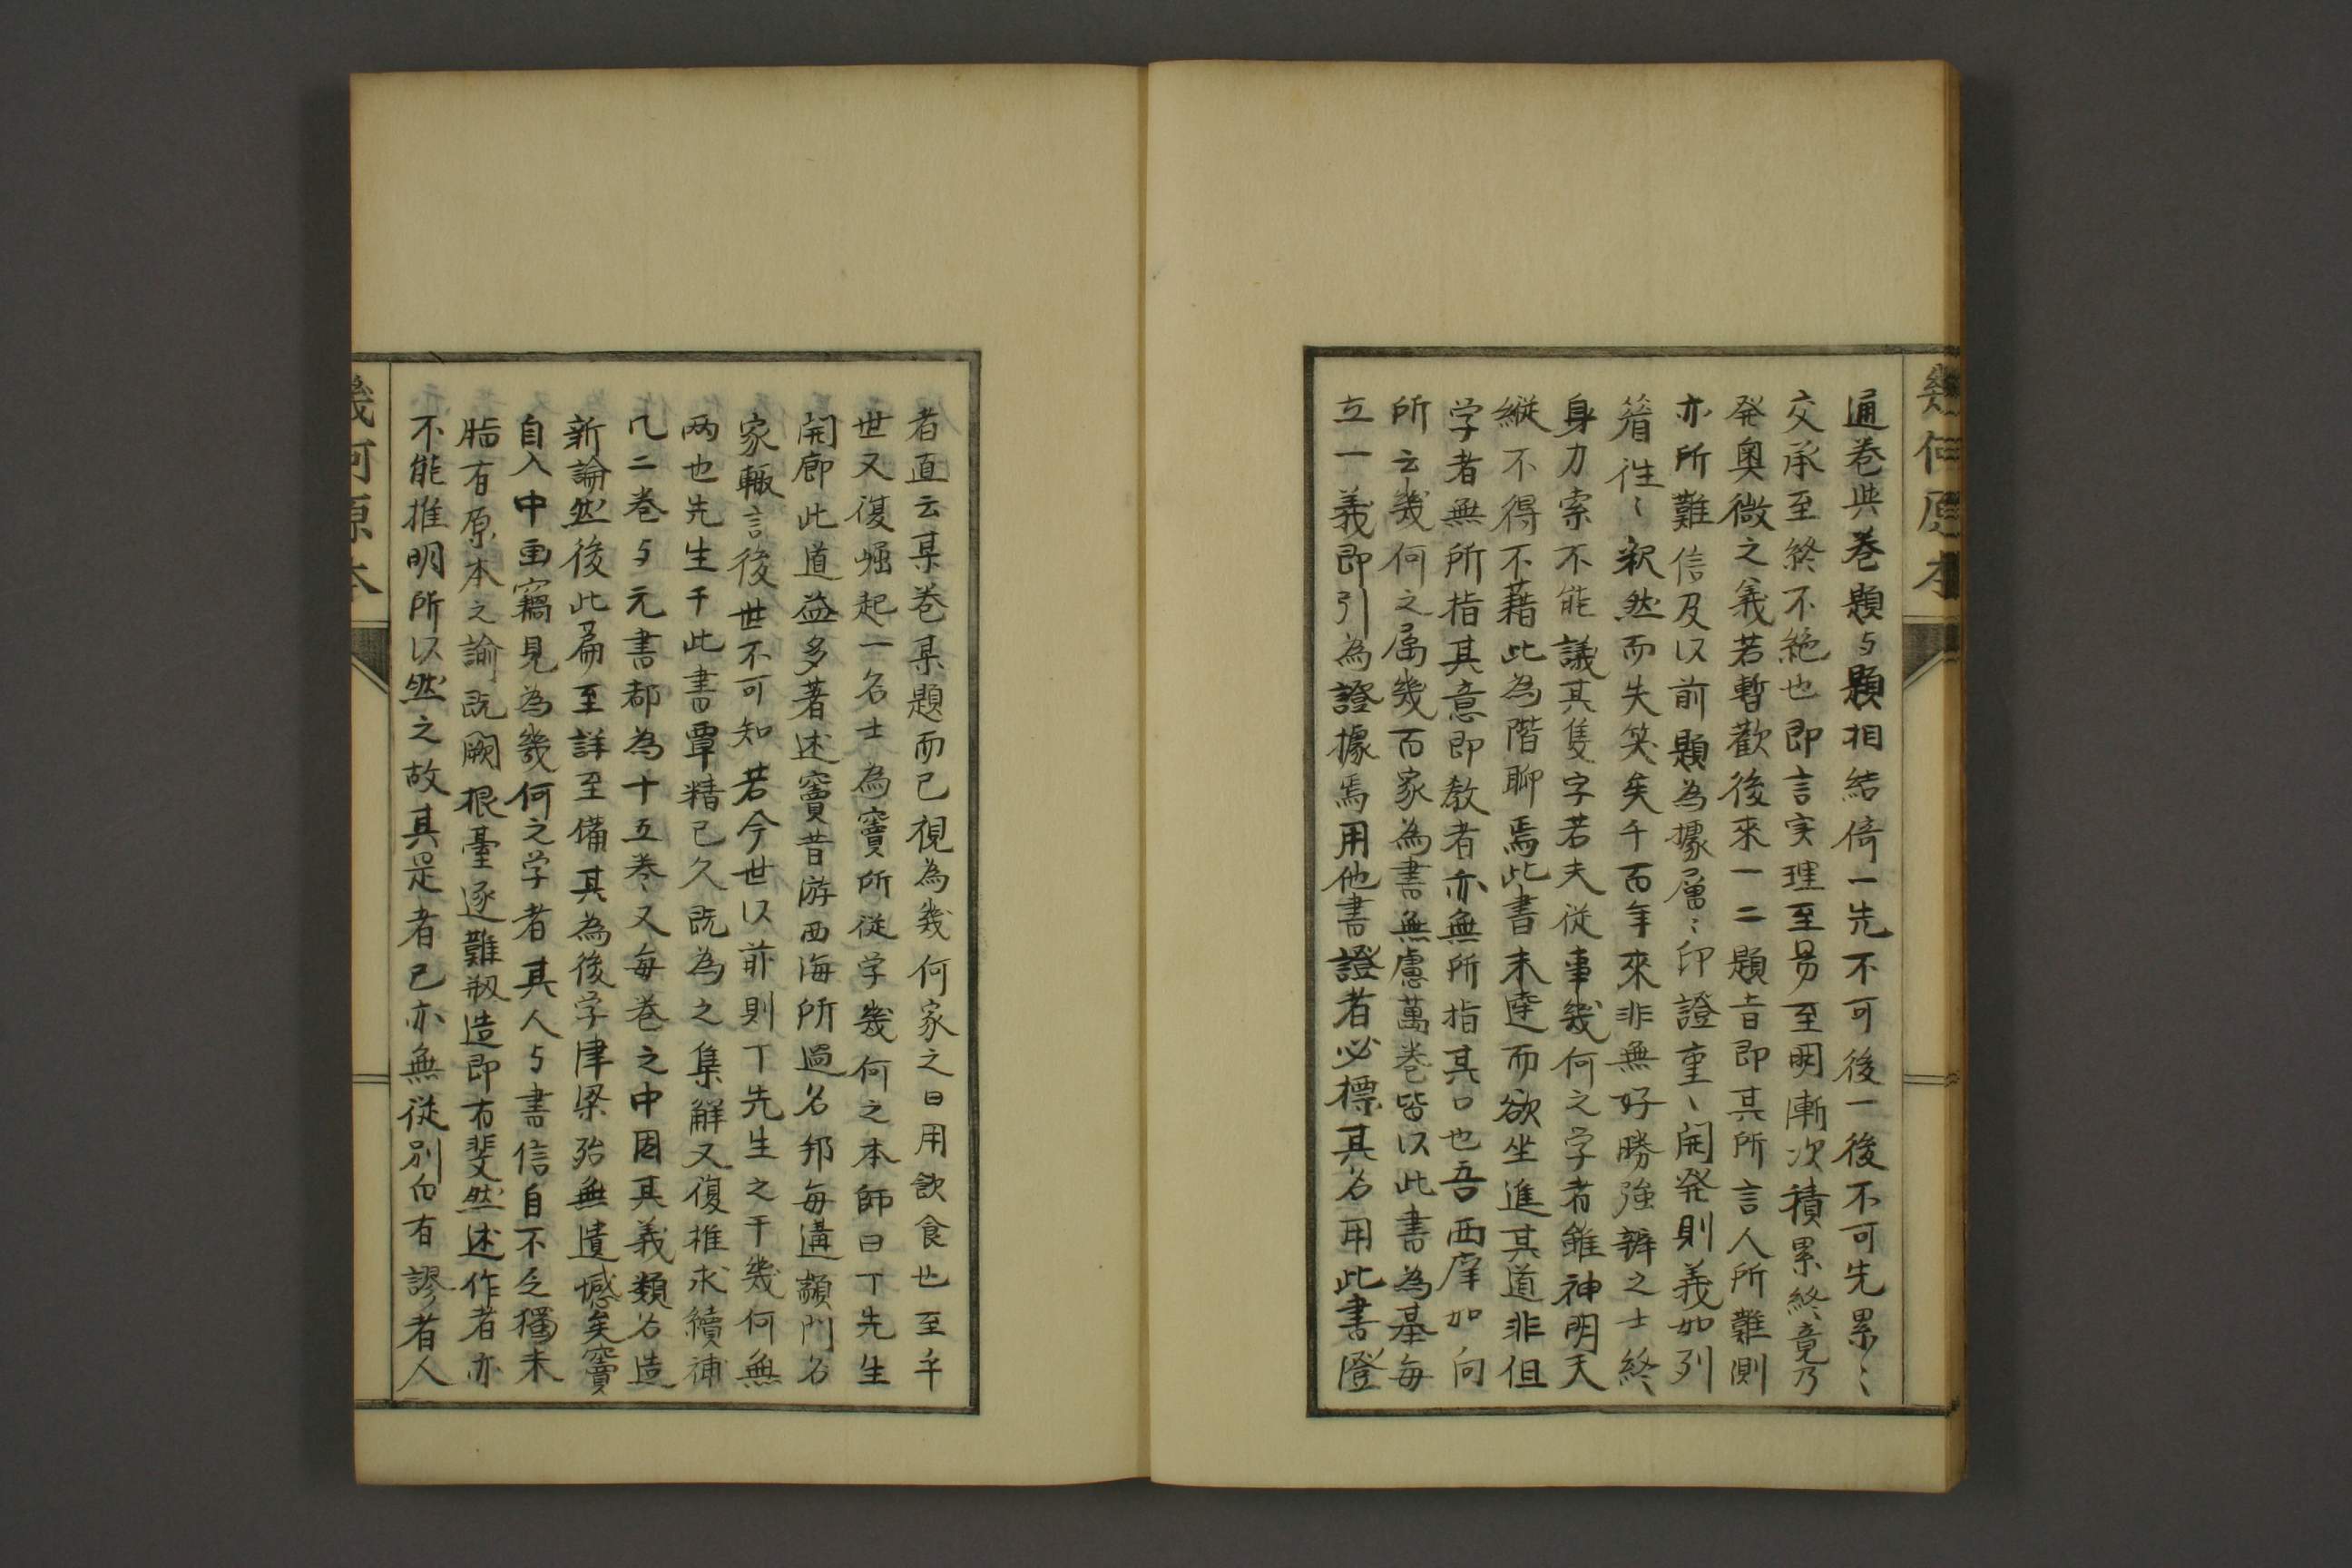 幾何原本
通巻與巻題与題相結倚一先不可後一後不可先累〻
交承至終不絶也即言実理至易至明漸次積累終竟乃
発奥微之義若暫歡後來一二題㫖即其所言人所難測
亦所難信及以前題為據層〻印證重〻開発則義如列
䈞徃〻釈然而失笑矣千百年來非無好勝強辨之士終
身力索不能議其隻字若夫従事幾何之学者雖神明天
縦不得不藉此為階聊焉此書未達而欲坐進其道非但
学者無所指其意即教者亦無所指其口也吾西庠如向
所云幾何之属幾百家為書無慮萬巻皆以此書為基毎
立一義即引為證據焉用他書證者必標其名用此書證
者直云某巻某題而已視為幾何家之日用飲食也至千
世又復崛起一名士為竇所従学幾何之本師曰丁先生
開廊此道益多著述竇昔游西海所過名邦毎遘顓門名
家輙言後世不可知若今世以前則丁先生之于幾何無
两也先生千此書覃精已久既為之集觧又復推求續補
凢二巻与元書都為十五巻又毎巻之中因其義類各造
新論然後此扁至詳至備其為後学津梁殆無遺憾矣竇
自入中囯竊見為幾何之学者其人与書信自不乏獨未
脂有原本之論既闕根䑓逐難剏造即有斐然述作者亦
不能推明所以然之故其是者已亦無従別白有謬者人
幾何原本